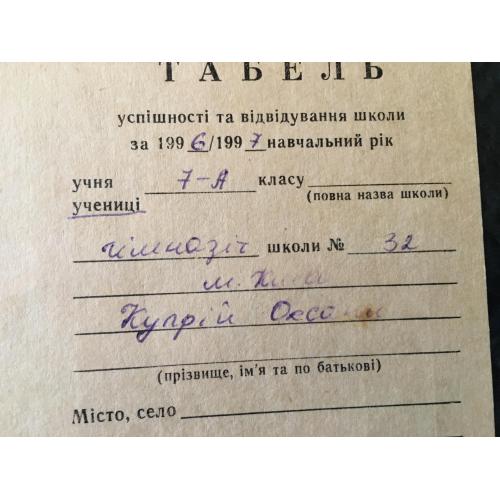 ТАБЕЛЬ
успішності та відвідування школи
за 1996/1997 навчальний рік
учня 7-А класу
учениці (повна назва школи)
гімназії школи № 32
м. Києва
Купрій Оксани
(прізвище, ім'я та по батькові)
Місто, село